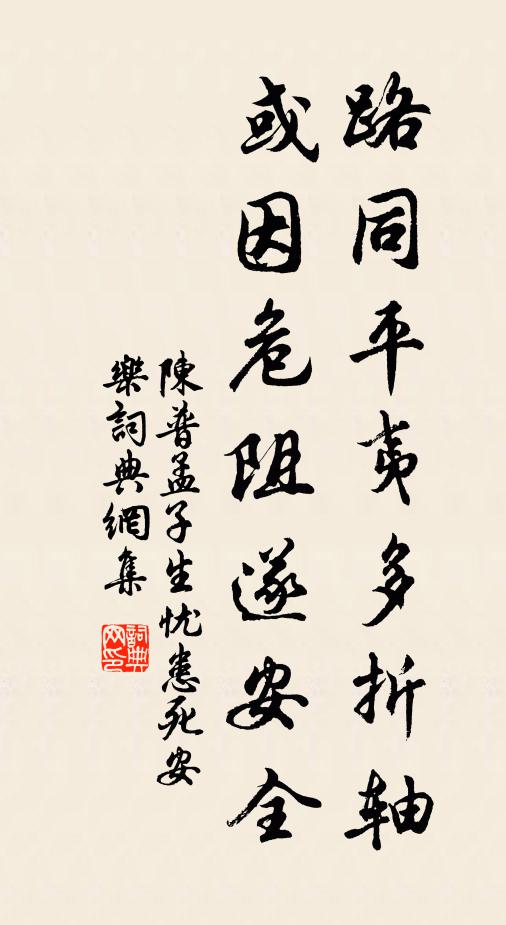 路同平夷多折軸
或因危阻遂安全
陳普孟子生忧患死安
樂詞典網集
詞典网印